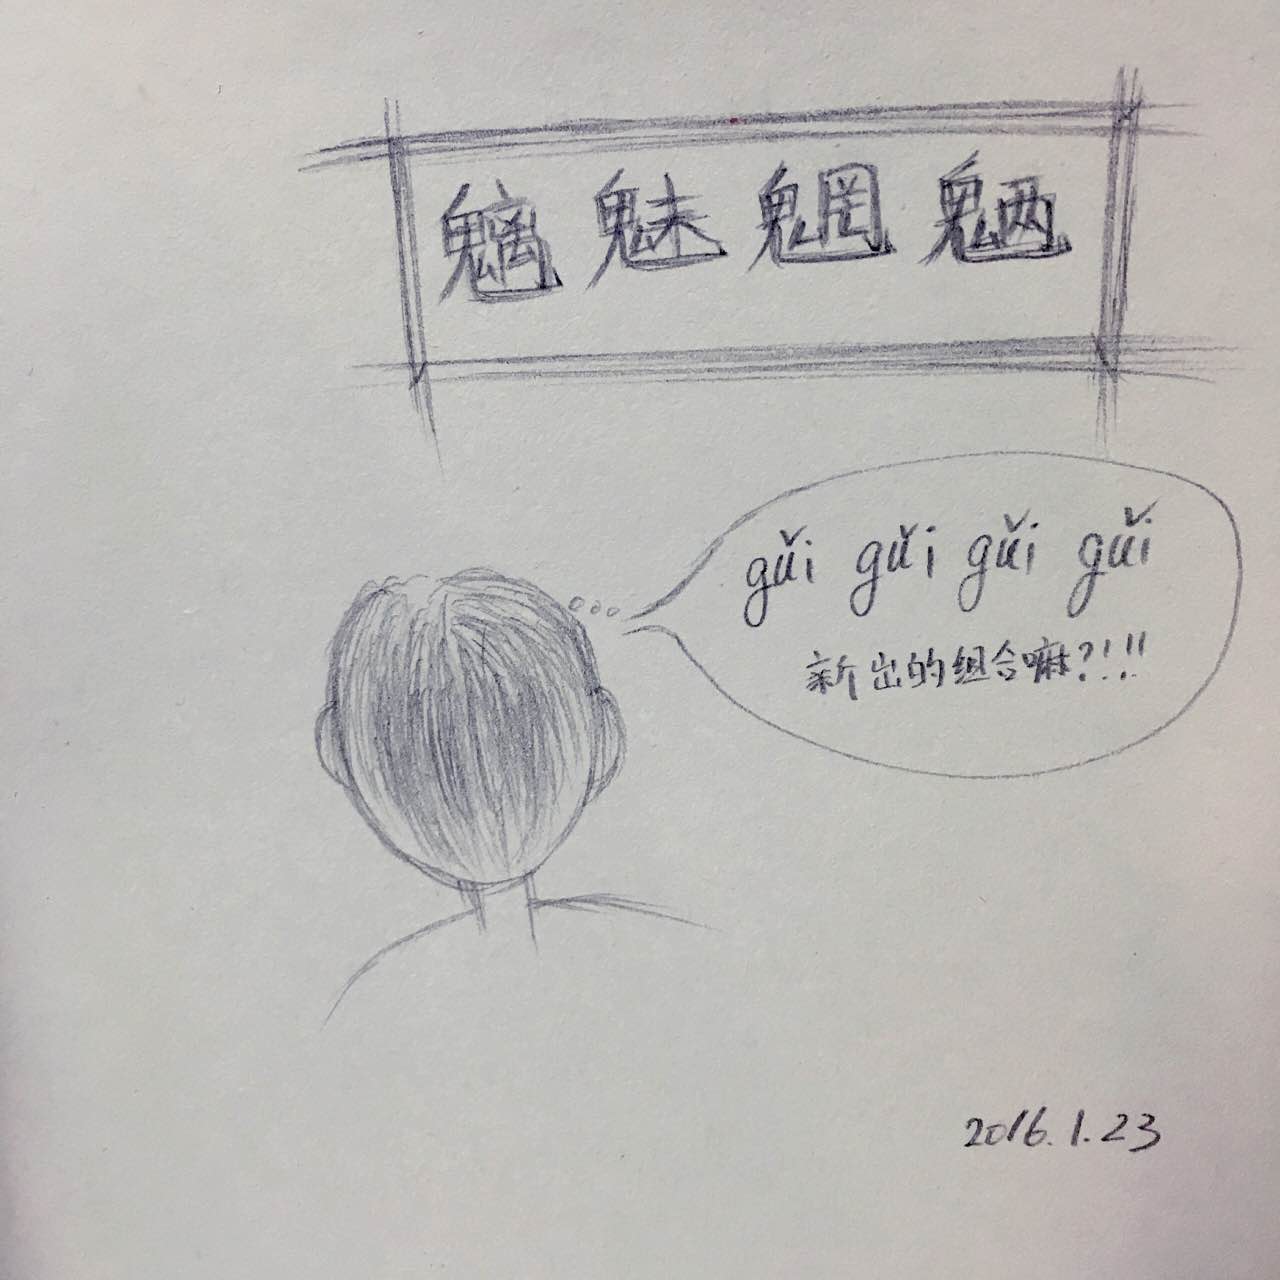 魑魅魍魉
gǔi gǔi gǔi gǔi
新出的组合嘛?!!!
2016.1.23